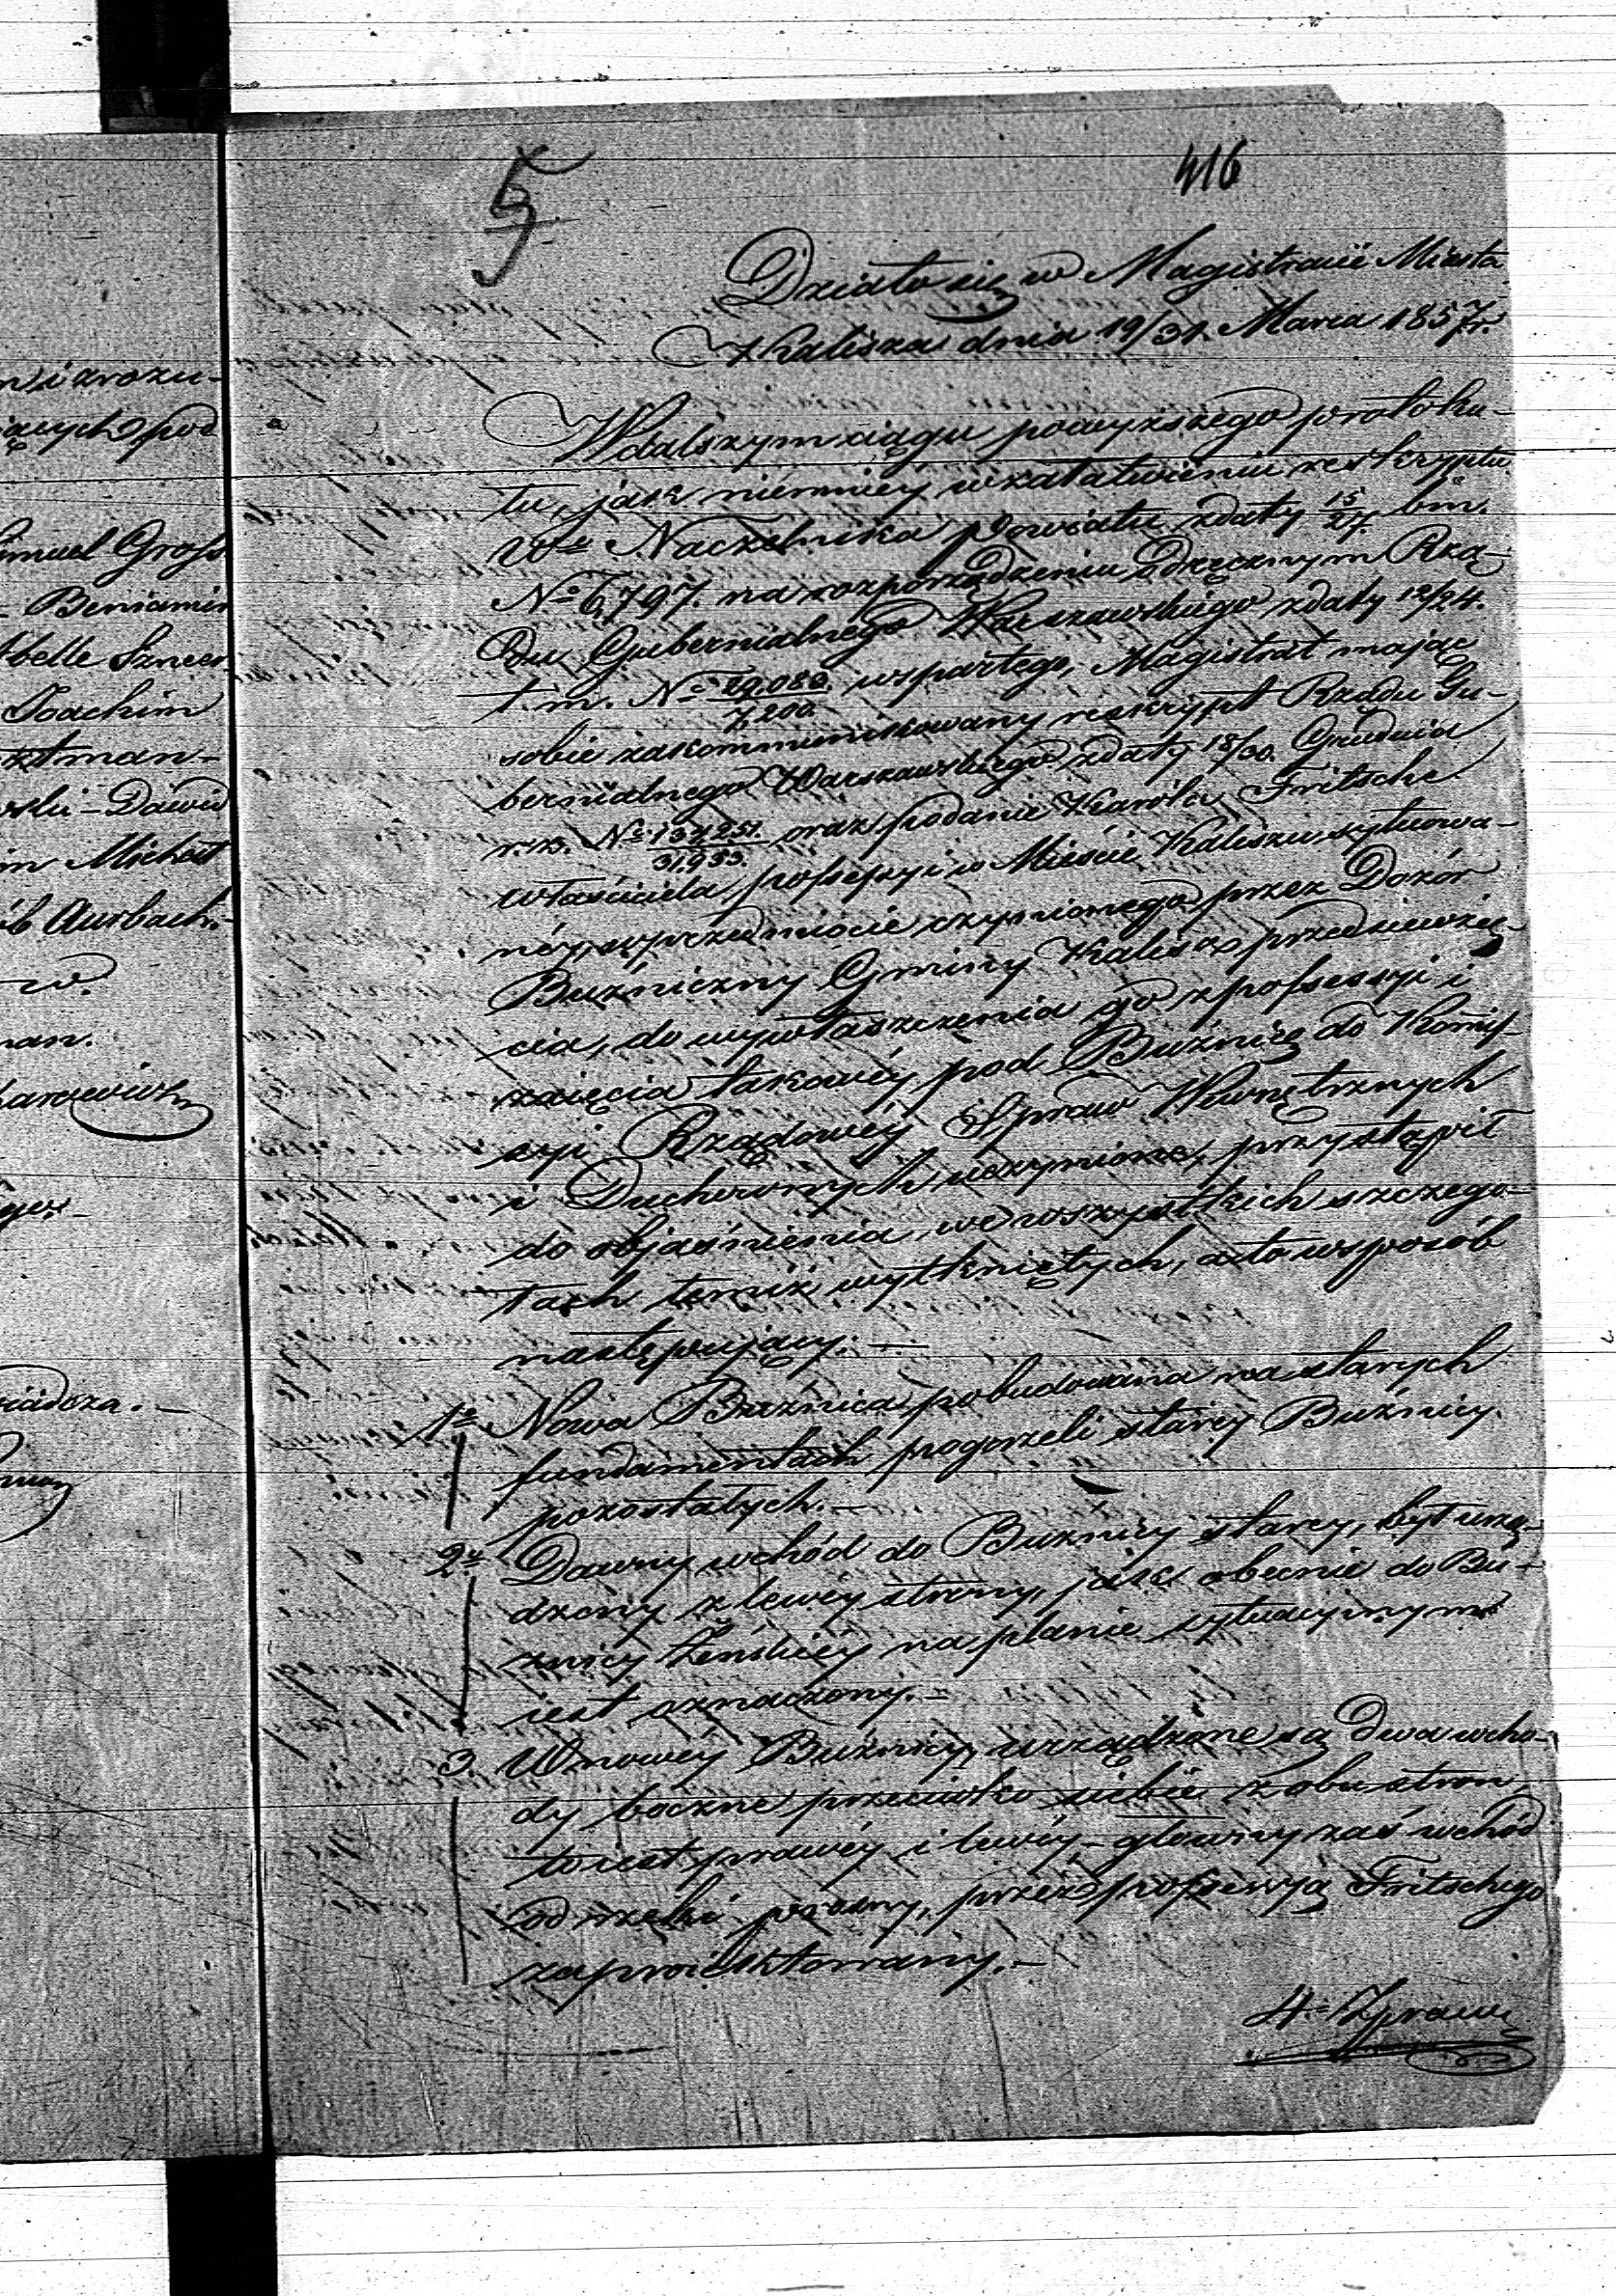 5
416
Działo się w Magistracie Miasta
Kalisza dnia 19/31. Marca 1857 r.
W dalszym ciągu powyższego protoku-
łu, jak niemniéj w załatwieniu reskryptu
Wgo Naczelnika Powiatu z daty 15/27. bm.
No 6,797. na rozporządzeniu odręcznym Rzą-
du Gubernialnego Warszawskiego z daty 12/24.
t. m. No 7,200. wspartego, Magistrat mając
sobie zakommunikowany reskrypt Rządu Gu-
bernialnego Warszawskiego z daty 18/30. Grudnia
r. z. No 137,251./31,933. oraz podanie Karola Fritsche
właściciela possessyi w Mieście Kaliszu sytuowa-
néj, w przedmiocie czynionego przez Dozór
Buźniczny Gminy Kalisz przedsiewzię-
cia, do wywłaszczenia go z possessyi i
zajęcia takowéj pod Buźnicę do Komis-
syi Rządowéj Spraw Wewnętrznych
i Duchownych uczynione, przystąpił
do objaśnienia, we wszystkich szczegó-
łach temiż wytkniętych, a to w sposób
następujący. —
1o Nowa Buźnica pobudowana na starych
fundamentach pogorzeli staréj Buźnicy
pozostałych. —
2o Dawny wchód do Buźnicy staréj, był urzą-
dzony z lewéj strony, jak obecnie do Bu-
źnicy Żeńskiéj na planie sytuacyjnym
iest oznaczony. —
3. W nowéj Buźnicy, urządzone są dwa wcho-
dy boczne przeciwko siebie z obu stron,
to iest prawéj i lewéj, — główny zaś wchód
od rzeki Prosny, przez possessyą Fritschego
zaproiektowany. —
4o Z prawéj
n i zrozu-
ących pod
Samuel Gross
- Beniamin
Abelle Szneer
Joachim
ztman -
rski - Dawid
m Michał
ób Aurbach.
w.
man.
karzewicz
yer -
iádcza. —